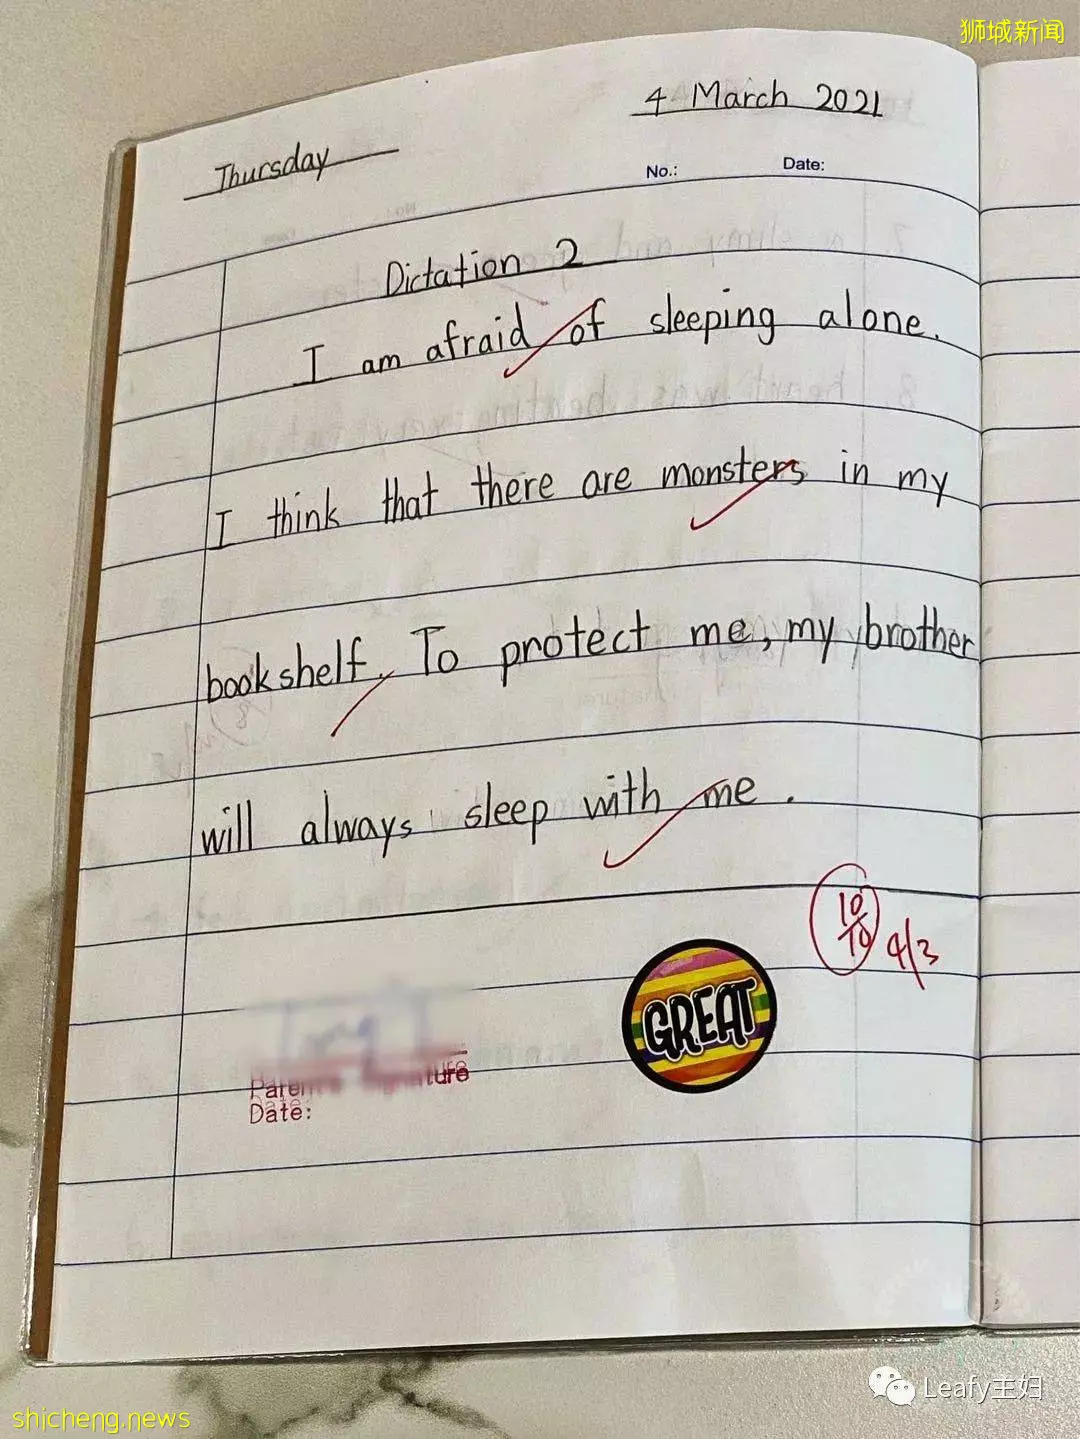 狮城新闻
4 March 2021
Thursday
No.: Date:
Dictation 2
I am afraid of sleeping alone.
I think that there are monsters in my
bookshelf. To protect me, my brother
will always sleep with me.
10/10 4/3
GREAT
Parent's Signature
Date:
Leafy主妇
shicheng.news